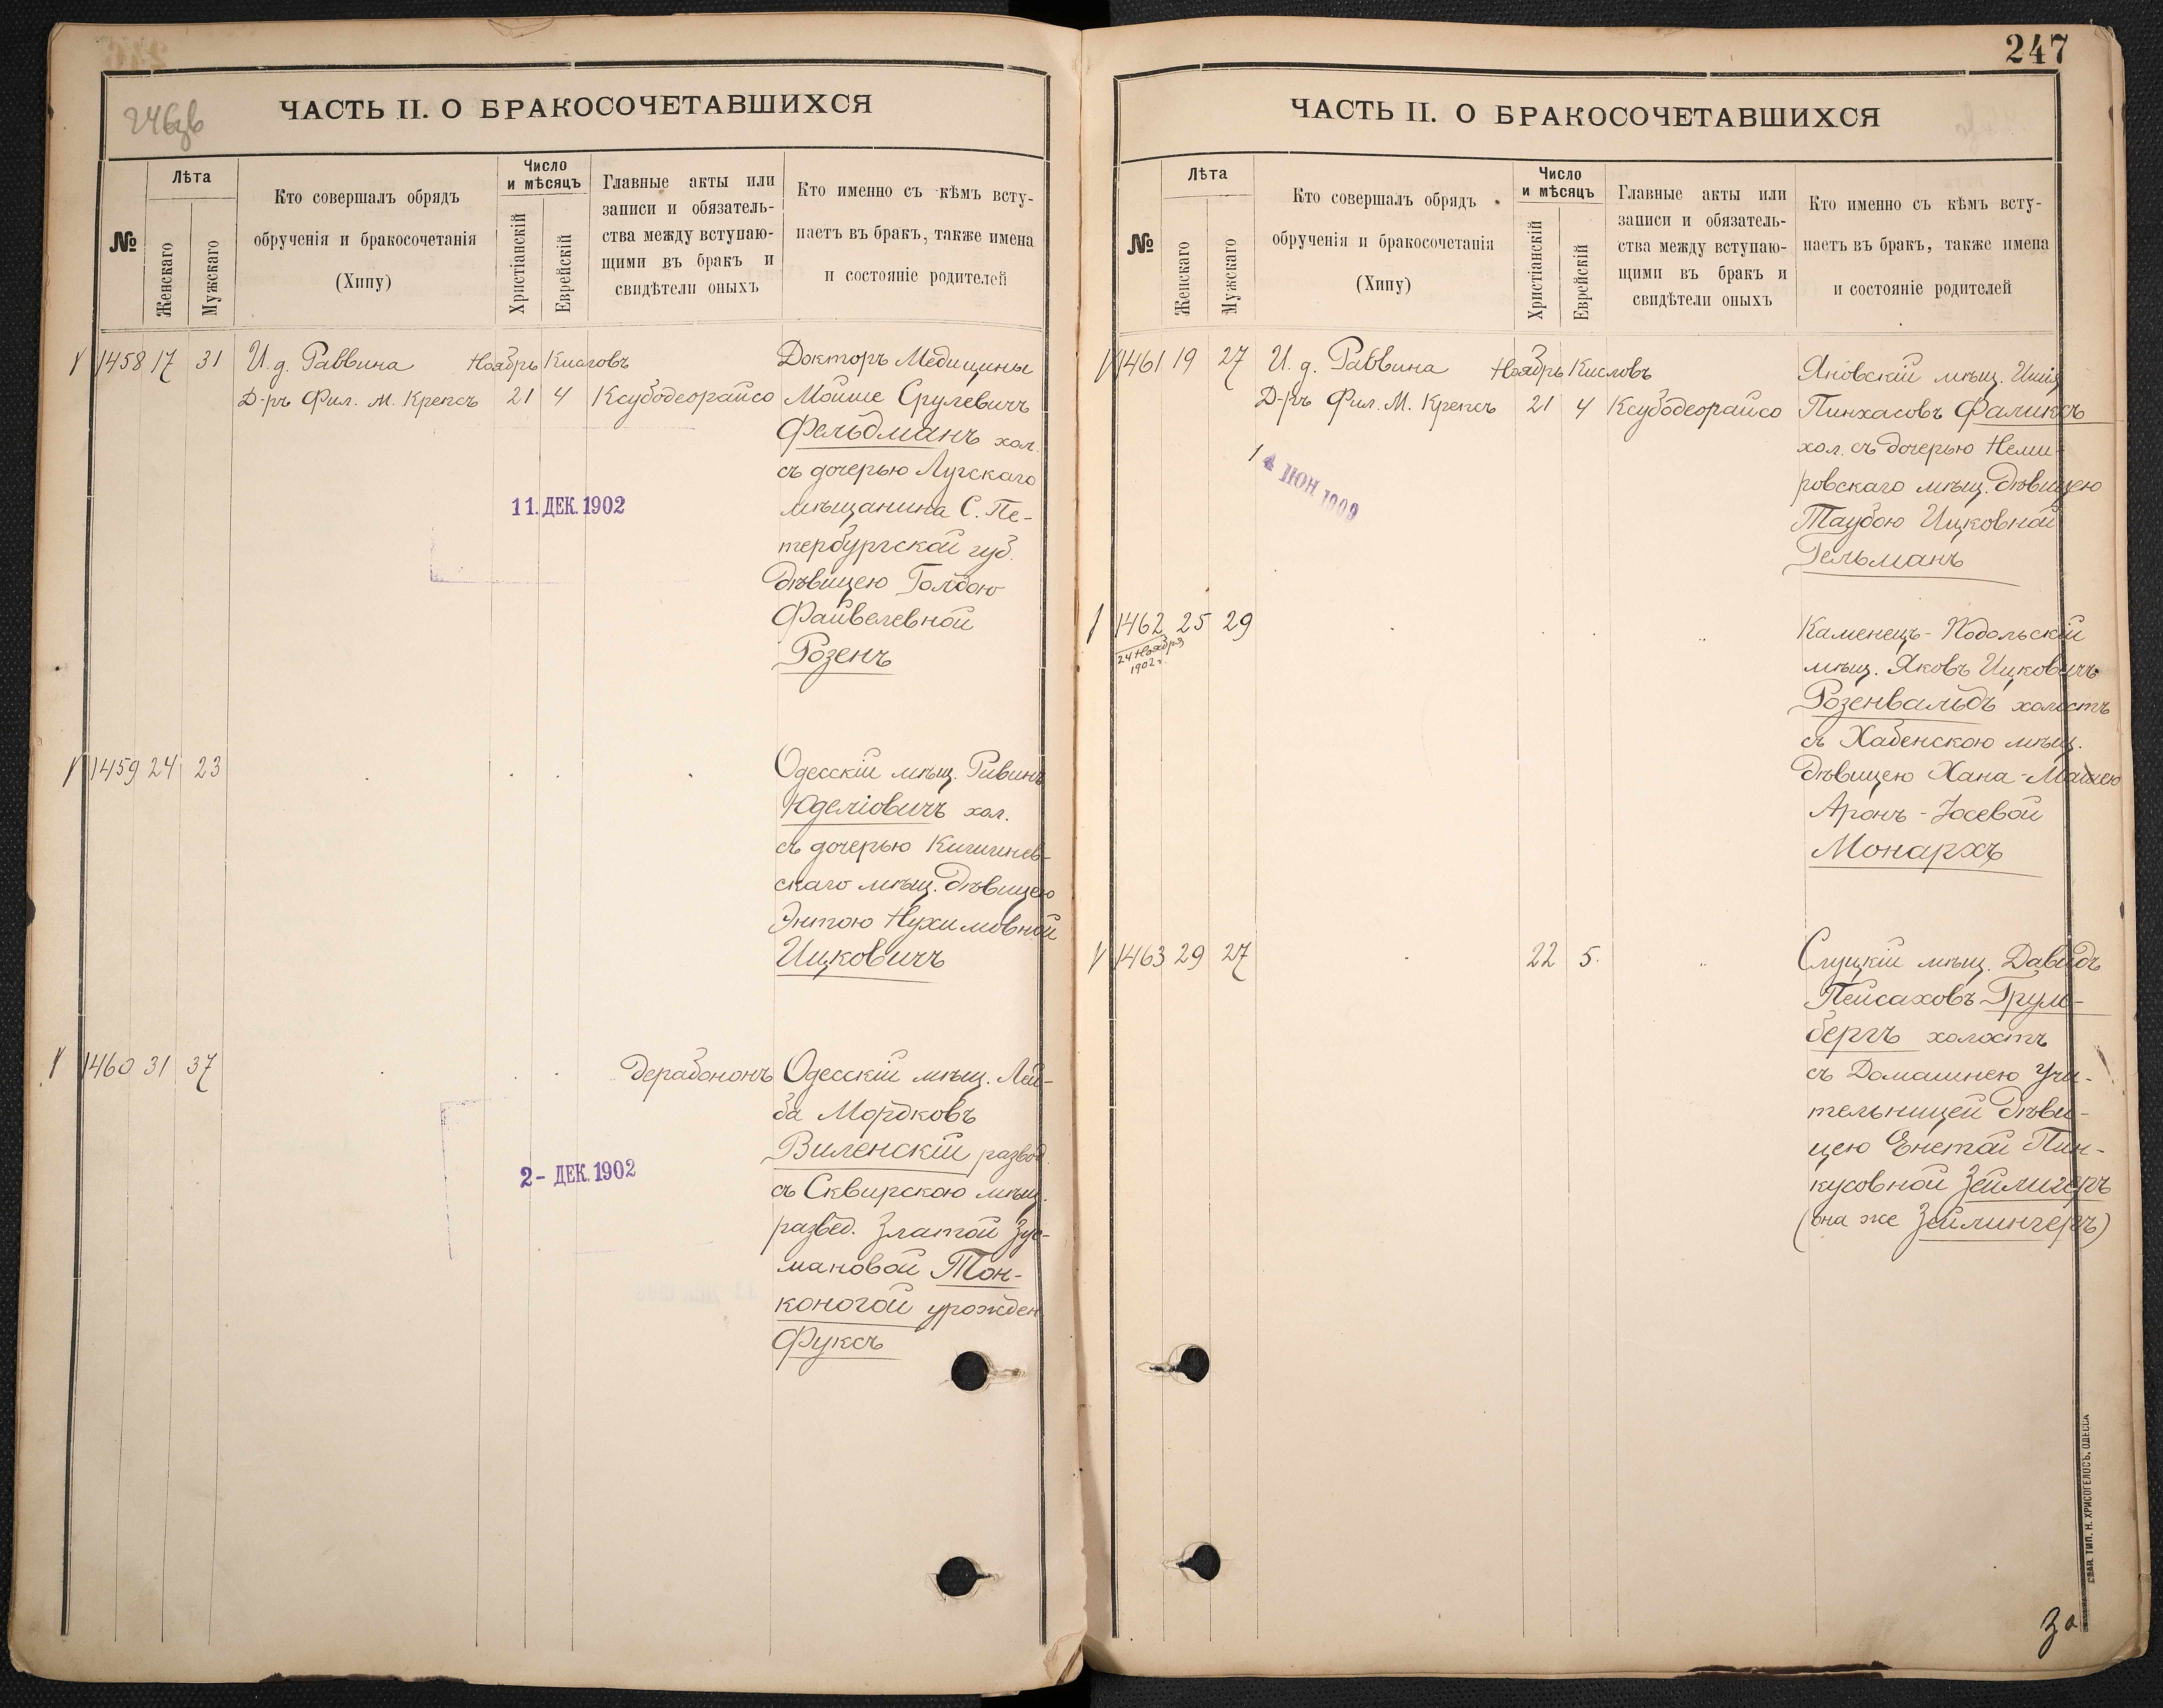 246зв
ЧАСТЬ II. О БРАКОСОЧЕТАВШИХСЯ
№
Лѣта
Женскаго
Мужскаго
Кто совершалъ обрядъ
обрученія и бракосочетанія
(Хипу)
Число
и мѣсяцъ
Христіанскій
Еврейскій
Главные акты или
записи и обязатель-
ства между вступаю-
щими въ бракъ и
свидѣтели оныхъ
Кто именно съ кѣмъ всту-
паетъ въ бракъ, также имена
и состояніе родителей
1458 17 31 И. д. Раввина Ноябрь Кисловъ Докторъ Медицины
Д-ръ Фил. М. Крепсъ 21 4 Ксубодеорайсо Мойше Срулевичъ
Фельдманъ хол.
съ дочерью Лугскаго
11. ДЕК. 1902 мѣщанина С. Пе-
тербургской губ.
дѣвицею Голдою
Файвелевной
Розенъ
1459 24 23 Одесскій мѣщ. Ривинъ
Юделіовичъ хол.
съ дочерью Кишинев-
скаго мѣщ. дѣвицею
Энтою Нухимовной
Ицковичъ
1460 31 37 дерабононъ Одесскій мѣщ. Лей-
ба Мордковъ
Виленскій развод.
2- ДЕК. 1902 съ Сквирскою мѣщ.
развед. Златой Зус-
мановой Тон-
коногой урожден.
Фуксъ
247
ЧАСТЬ II. О БРАКОСОЧЕТАВШИХСЯ
№
Лѣта
Женскаго
Мужскаго
Кто совершалъ обрядъ
обрученія и бракосочетанія
(Хипу)
Число
и мѣсяцъ
Христіанскій
Еврейскій
Главные акты или
записи и обязатель-
ства между вступаю-
щими въ бракъ и
свидѣтели оныхъ
Кто именно съ кѣмъ всту-
паетъ въ бракъ, также имена
и состояніе родителей
1461 19 27 И. д. Раввина Ноябрь Кисловъ Яновскій мѣщ. Икія
Д-ръ Фил. М. Крепсъ 21 4 Ксубодеорайсо Пинхасовъ Фаликсъ
хол. съ дочерью Неми-
ІЮН 1909 ровскаго мѣщ. дѣвицею
Таубою Ицковной
Гельманъ
1462 25 29 Каменецъ-Подольскій
24 Ноября
1902 г.
мѣщ. Яковъ Ицковичъ
Розенвальдъ холостъ
съ Хабенскою мѣщ.
дѣвицею Хана-Малкею
Аронъ-Іосевой
Монархъ
1463 29 27 22 5. Слуцкій мѣщ. Давидъ
Пейсаховъ Грум-
бергъ холостъ
съ Домашнею Учи-
тельницей дѣви-
цею Енетой Пин-
кусовной Зейлигеръ
(она же Зейлингеръ)
СЛАВ. ТИП. Н. ХРИСОГЕЛОСЪ, ОДЕССА